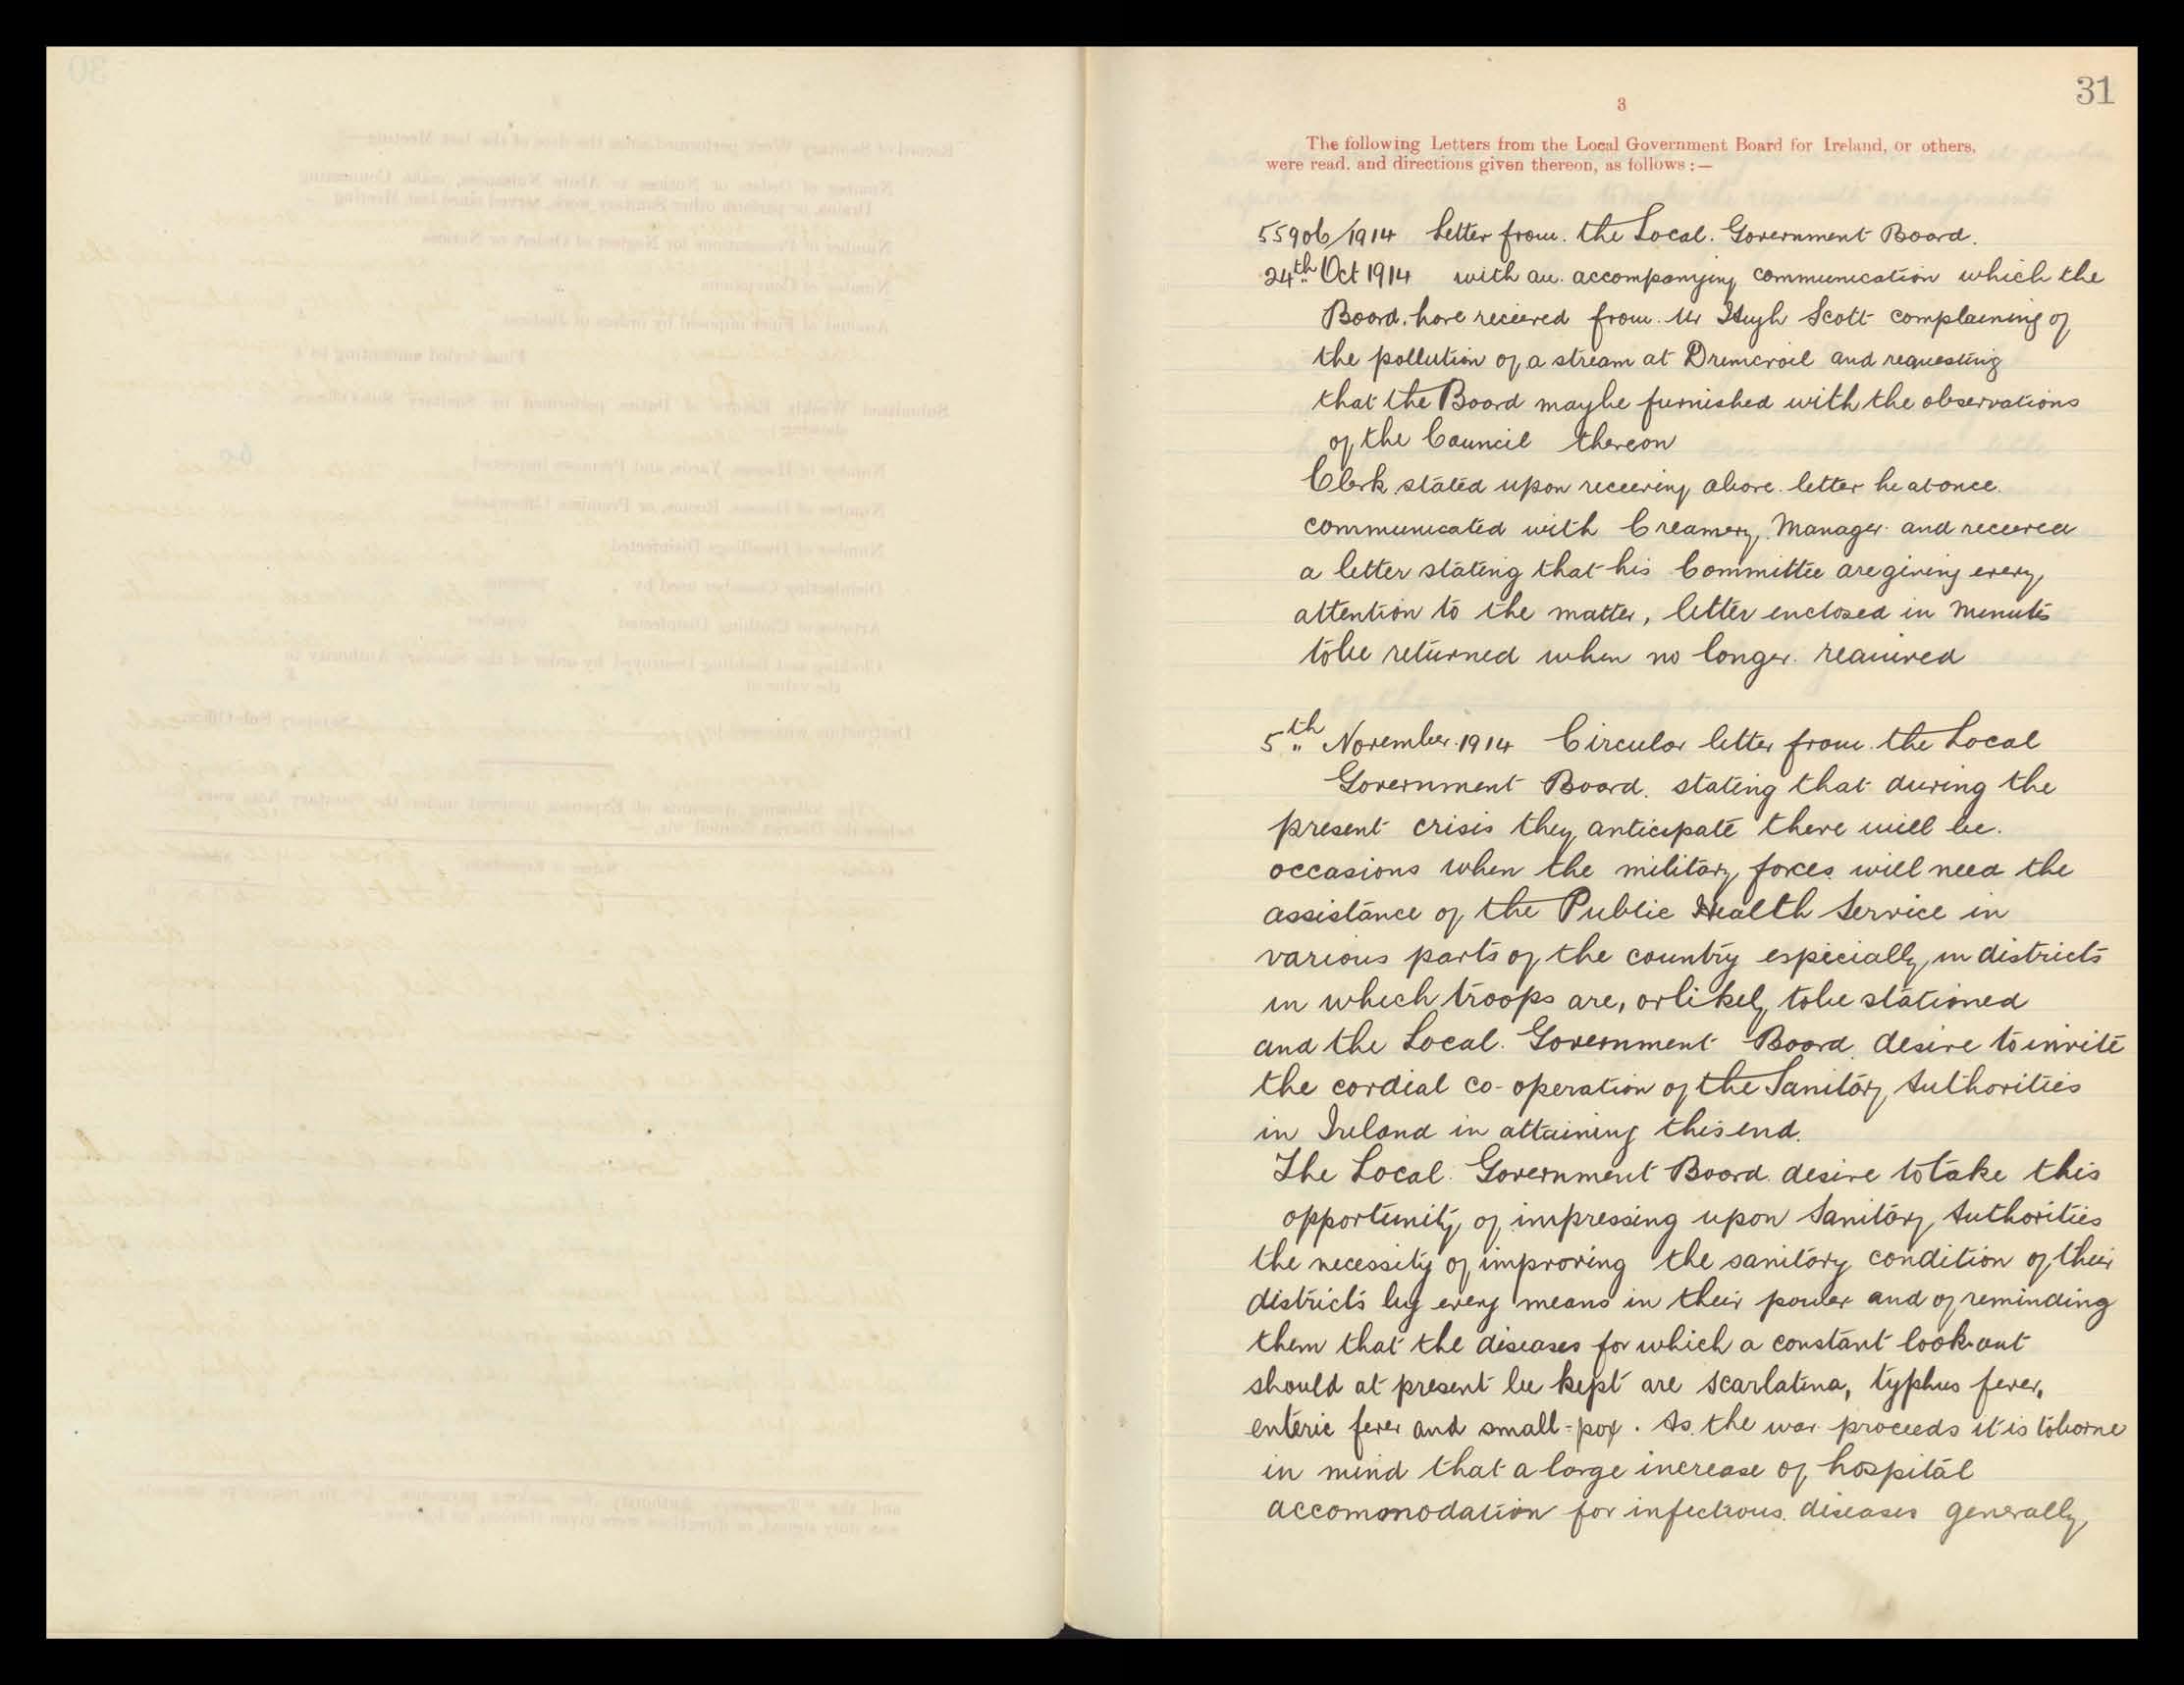 31
3
The following Letters from the Local Government Board for Ireland, or others,
were read, and directions given thereon, as follows :—
55906/1914 Letter from the Local Government Board.
24th Oct 1914 with an accompanying communication which the
Board have received from Mr Hugh Scott complaining of
the pollution of a stream at Drumcroil and requesting
that the Board may be furnished with the observations
of the Council thereon
Clerk stated upon receiving above letter he at once
communicated with Creamery Manager and received
a letter stating that his Committee are giving every
attention to the matter, letter enclosed in Minutes
to be returned when no longer required
5th November 1914 Circular letter from the Local
Government Board stating that during the
present crisis they anticipate there will be
occasions when the military forces will need the
assistance of the Public Health Service in
various parts of the country especially in districts
in which troops are, or likely to be stationed
and the Local Government Board desire to invite
the cordial co-operation of the Sanitary Authorities
in Ireland in attaining this end.
The Local Government Board desire to take this
opportunity of impressing upon Sanitary Authorities
the necessity of improving the sanitary condition of their
districts by every means in their power and of reminding
them that the diseases for which a constant look-out
should at present be kept are scarlatina, typhus fever,
enteric fever and small-pox. As the war proceeds it is to borne
in mind that a large increase of hospital
accomonodation for infectious diseases generally